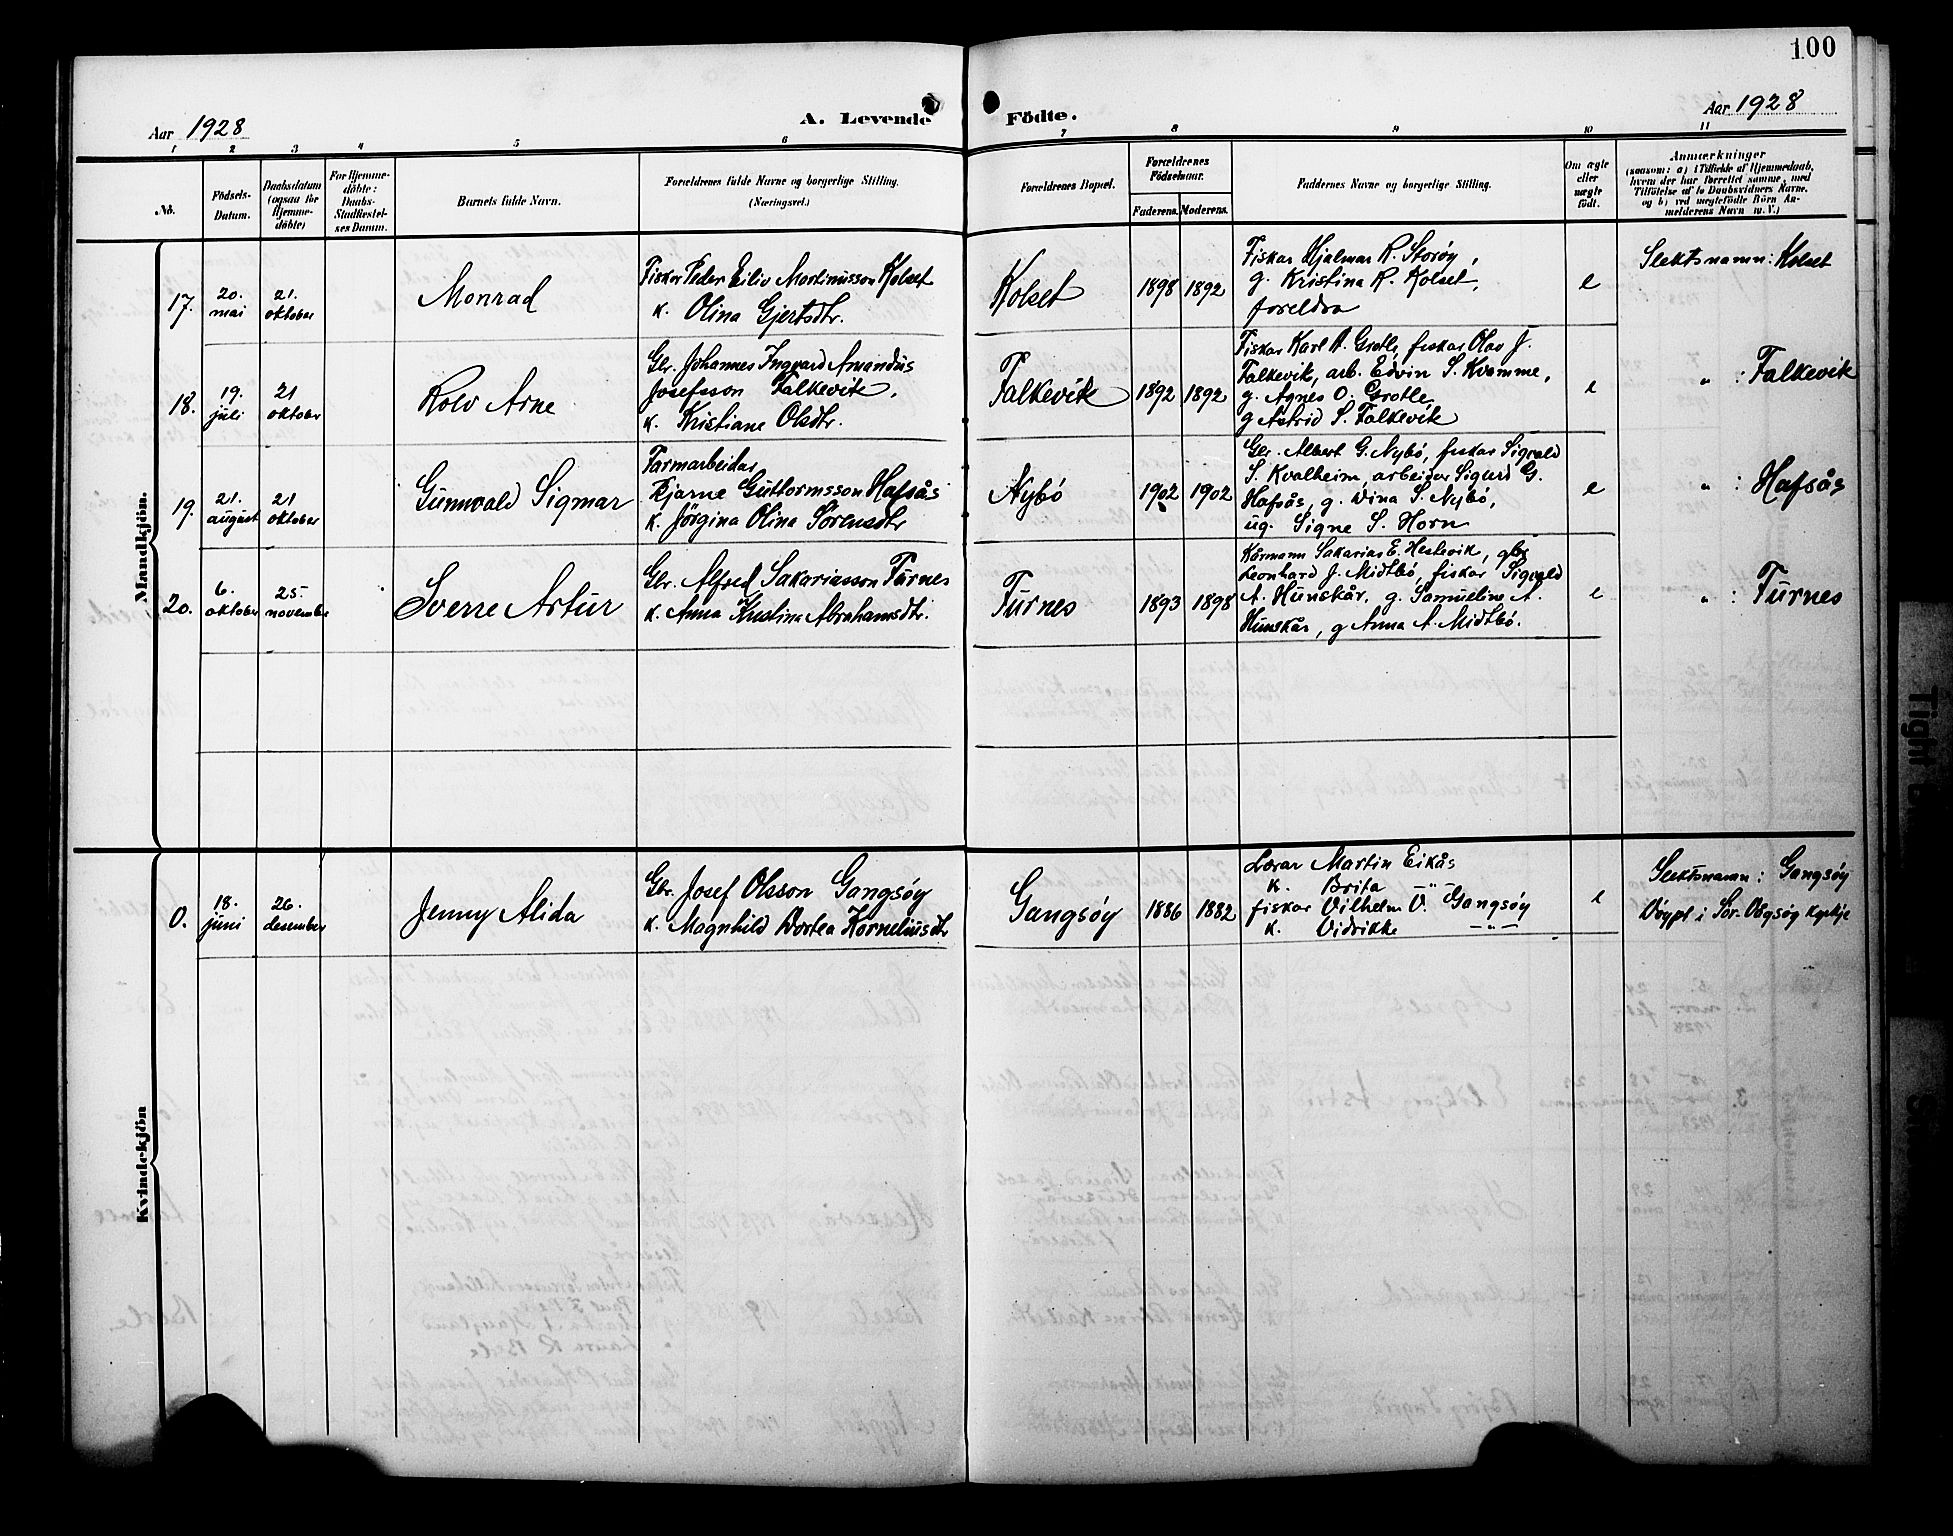 100
Aar 1928
A. Levende Födte.
Aar 1928
1 2 3 4 5 6 7 8 9 10 11
No.
Födsels-
Datum.
Daabsdatum
(ogsaa for
Hjemme-
döbte)
For Hjemme-
döbte:
Daabs-
Stadfestel-
ses Datum.
Barnets fulde Navn.
Forældrenes fulde Navne og borgerlige Stilling.
(Næringsvei.)
Forældrenes Bopæl.
Forældrenes
Födselsaar.
Faderens. Moderens.
Faddernes Navne og borgerlige Stilling.
Om ægte
eller
uægte
födt.
Anmærkninger
(saasom: a) i Tilfælde af Hjemmedaab,
hvem der har forrettet samme, med
Tilföielse af to Daabsvidners Navne,
og b) ved uægtefödte Börn An-
melderens Navn m. V.)
Mandkjön.
17.
20.
mai
21.
oktober
Monrad
Fiskar Peder Eiliv Martinusson Kolset
k. Olina Gjertsdtr.
Kolset
1898 1892
Fiskar Hjalmar R. Storøy,
g. Kristina R. Kolset,
foreldra
e
Slektsnamn: Kolset
18.
19.
juli
21
oktober
Rolv Arne
Gbr. Johannes Ingvard Amandus
Josefsson Falkevik.
k. Kristiane Olsdtr.
Falkevik
1892 1892
Fiskar Karl A. Grotle, fiskar Olav J.
Falkevik, arb. Edvin S. Kvamme,
g. Agnes O. Grotle,
g Astrid S. Falkevik
e
" : Falkevik
19.
21.
august
21
oktober
Gunnvald Sigmar
Farmarbeidar
Bjarne Guttormsson Hafsås
k. Jörgina Olina Sörensdtr
Nybö
1902 1902
Gbr. Albert G. Nybö, fiskar Sigvald
S. Kvalheim, arbeider Sigurd G.
Hafsås, g. Dina S. Nybö,
ug. Signe S. Horn
e
" : Hafsås
20.
6.
oktober
25.
november
Sverre Artur
Gbr. Alfred Sakariasson Furnes
k. Anna Kristina Abrahamsdtr.
Furnes
1893 1898
Kårmann Sakarias E. Hestevik, gbr
Leonhard J. Midtbö, fiskar Sigvald
A. Hunskår, g. Samueline A.
Hunskår, g Anna A. Midtbö.
e
" : Furnes
Kvindekjön
0.
18.
juni
26.
desember
Jenny Alida
Gbr. Josef Olsson Gangsöy
k. Magnhild Dortea Korneliusdtr
Gangsöy
1886 1882
Lærar Martin Eikås
k. Brita —"—
fiskar Vilhelm O. Gangsöy
k. Vidrikke —"—
e
Slektsnamn: Gangsöy
Döypt i Sör-Vågsöy kyrkje